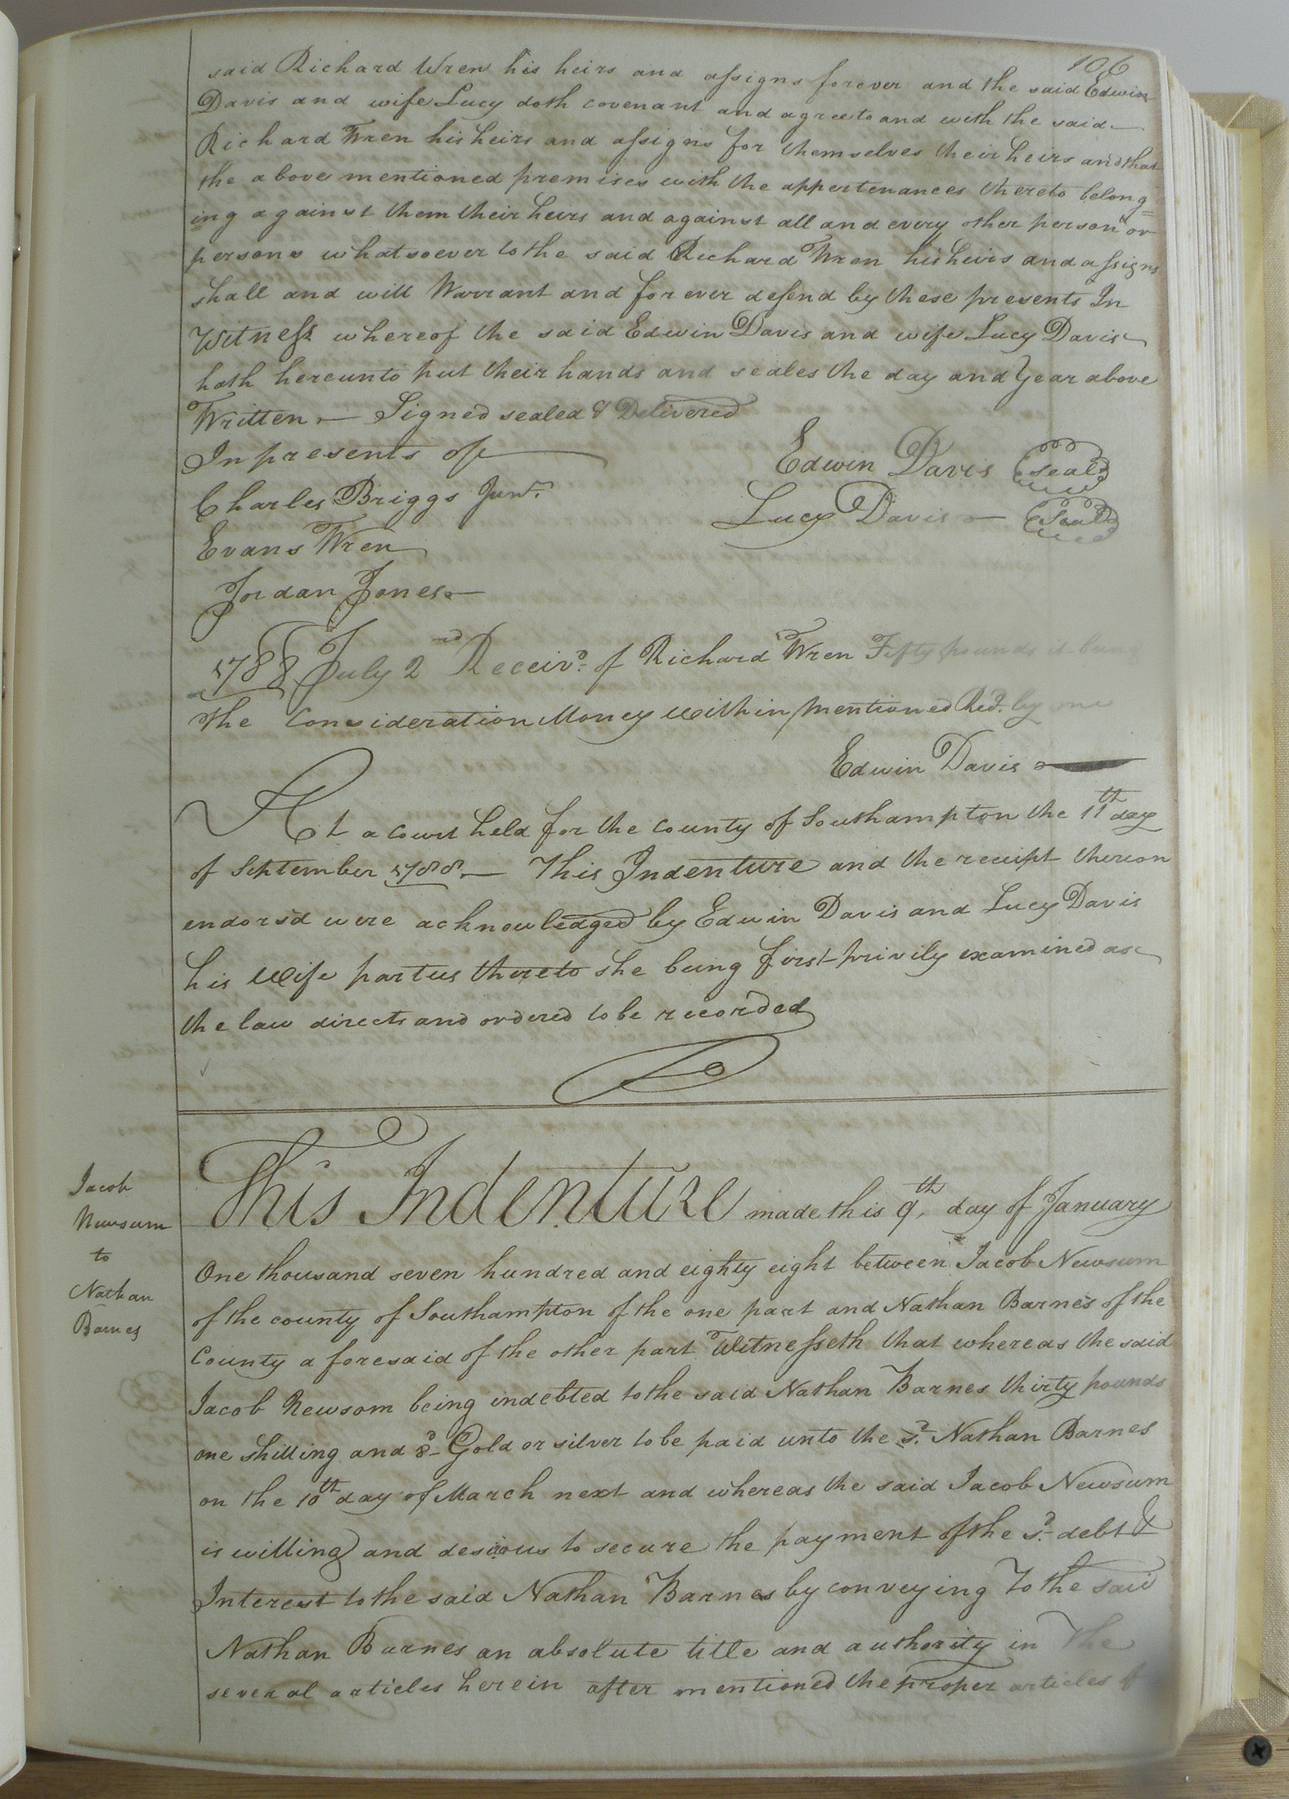 106
said Richard Wren his heirs and assigns forever and the said Edwin
Davis and wife Lucy doth covenant and agree to and with the said
Richard Wren his heirs and assigns for themselves their heirs and that
the above mentioned premises with the appertenances thereto belong=
ing against them their heirs and against all and every other person or
persons whatsoever to the said Richard Wren his heirs and assigns
shall and will Warrant and forever defend by these presents In
Witness whereof the said Edwin Davis and wife Lucy Davis
hath hereunto put their hands and seales the day and Year above
Written — Signed sealed & Delivered
In presents of
Edwin Davis seal
Charles Briggs Junr.
Lucy Davis — Seal
Evans Wren
Jordan Jones —
1788 July 2nd Receivd. of Richard Wren Fifty pounds it being
the Consideration Money within mentioned Recd. by me
Edwin Davis
At a court held for the county of Southampton the 11th day
of September 1788 — This Indenture and the receipt thereon
endorsd were acknowledged by Edwin Davis and Lucy Davis
his Wife parties thereto she being first privily examined as
the law directs and ordered to be recorded
Jacob
Newsum
to
Nathan
Barnes
This Indenture made this 9th. day of January
One thousand seven hundred and eighty eight between Jacob Newsum
of the county of Southampton of the one part and Nathan Barnes of the
County aforesaid of the other part Witnesseth that whereas the said
Jacob Newsom being indebted to the said Nathan Barnes thirty pounds
one shilling and 8d Gold or silver to be paid unto the sd. Nathan Barnes
on the 10th day of March next and whereas the said Jacob Newsum
is willing and desious to secure the payment of the sd. debt &
Interest to the said Nathan Barnes by conveying To the said
Nathan Barnes an absolute title and authority in The
several articles herein after mentioned the proper articles of